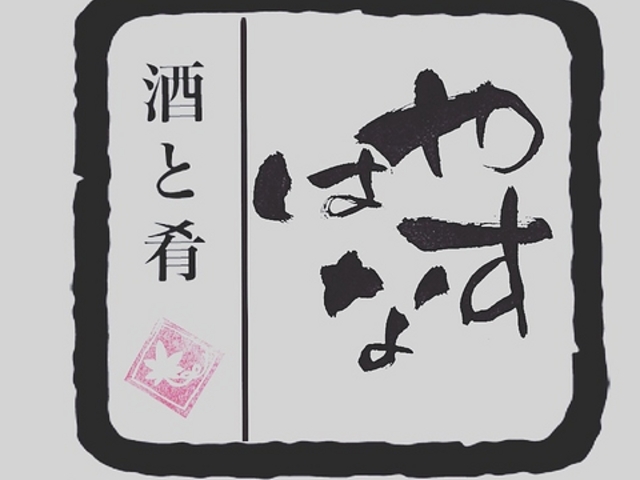 やす
はな
酒と肴